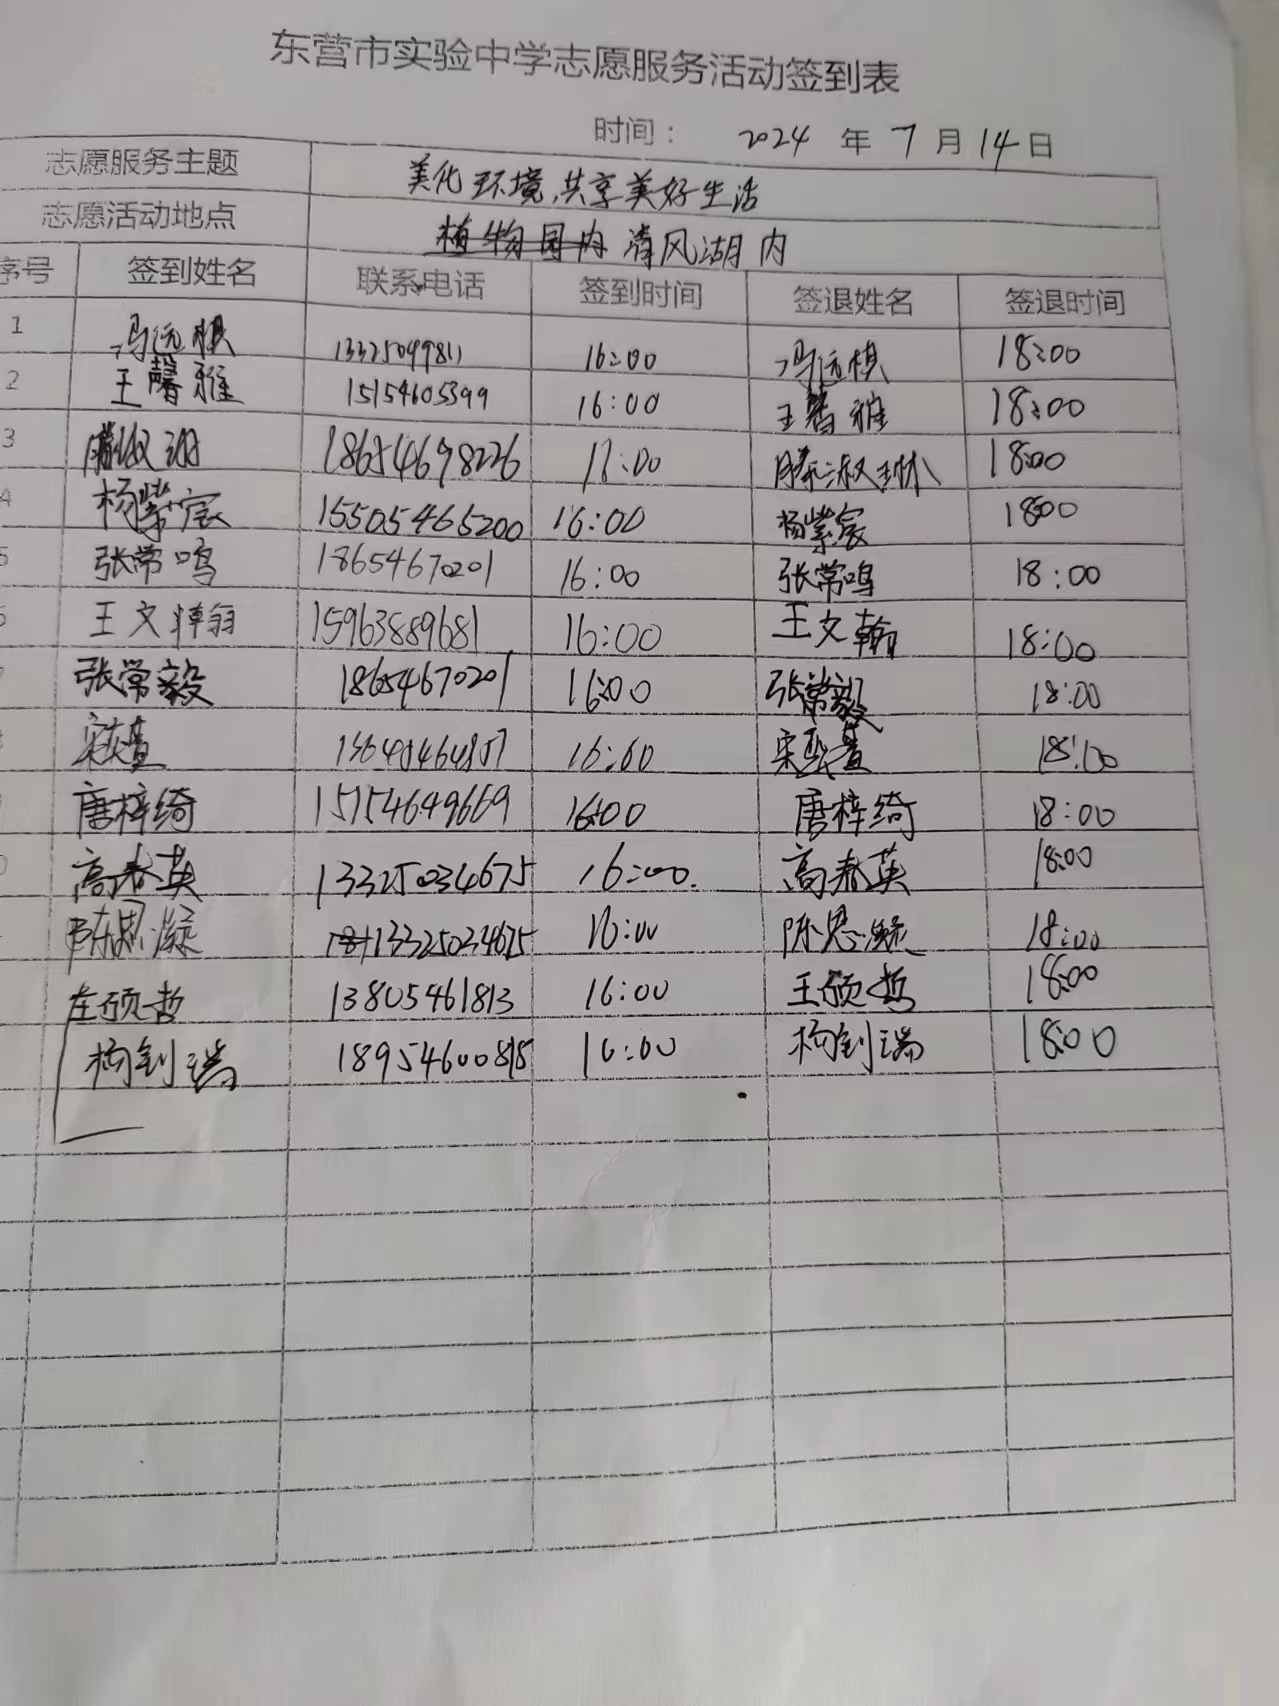 东营市实验中学志愿服务活动签到表
时间： 2024 年 7 月 14 日
志愿服务主题 美化环境,共享美好生活
志愿活动地点 植物园内 清风湖内
序号 签到姓名 联系电话 签到时间 签退姓名 签退时间
1 冯远棋 13325049811 16:00 冯远棋 18:00
2 王馨雅 15154605399 16:00 王馨雅 18:00
3 18654698226 滕淑琳 18:00
4 杨紫宸 15505465200 16:00 杨紫宸 18:00
5 张常鸣 18654670201 16:00 张常鸣 18:00
王文 15963889681 16:00 王文翰 18:00
张常毅 18654670201 16:00 张常毅 18:00
宋 16:00 宋 18:00
唐梓绮 15154649669 16:00 唐梓绮 18:00
高春英 13325034675 16:00 高春英 18:00
陈思凝 13325034675 16:00 陈思凝 18:00
硕哲 13805461813 16:00 王硕哲 18:00
杨钊瑞 16:00 杨钊瑞 18:00